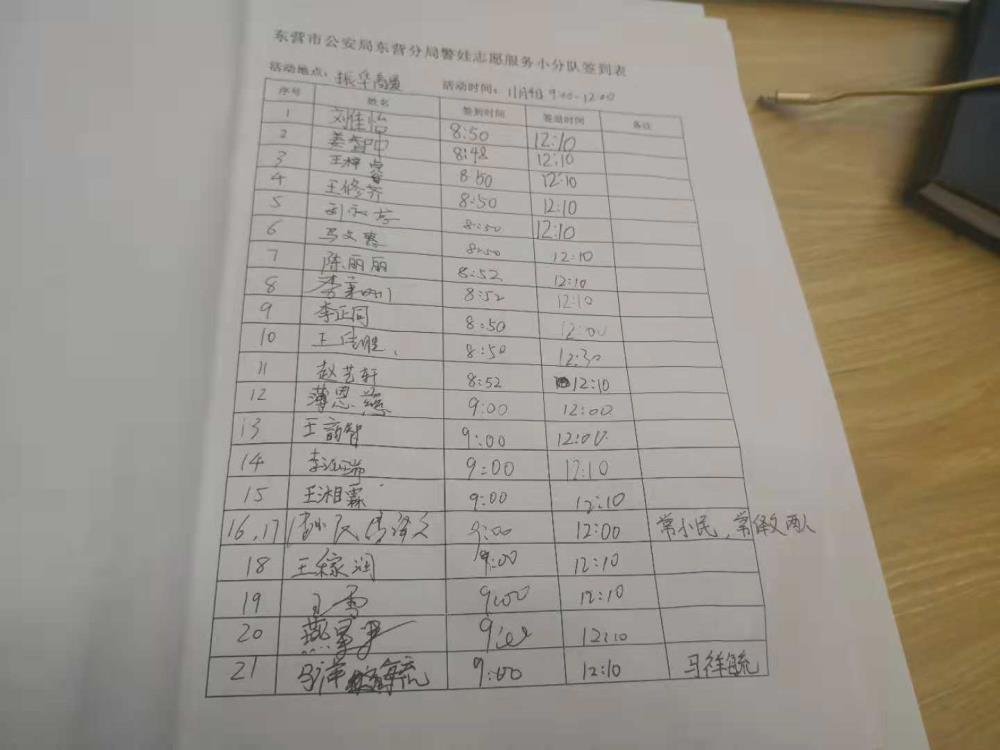 东营市公安局东营分局警娃志愿服务小分队签到表
活动地点： 振华商厦 活动时间： 11月4日 9:00-12:00
序号 姓名 签到时间 签退时间 备注
1 刘佳怡 8:50 12:10
2 姜智 8:48 12:10
3 王梓睿 8:50 12:10
4 王修齐 8:50 12:10
5 8:50 12:10
6 马文惠 8:50 12:10
7 陈丽丽 8:52 12:10
8 李 8:52 12:10
9 李正同 8:50 12:00
10 王 8:50 12:30
11 赵艺轩 8:52 12:10
12 薄恩 9:00 12:00
13 王韵智 9:00 12:00
14 李 瑞 9:00 12:10
15 王湘霖 9:00 12:10
16,17 9:00 12:00 常小民，常译文两人
18 王稼润 9:00 12:10
19 9:00 12:10
20 燕 9:00 12:10
21 马祥毓 9:00 12:10 马祥毓